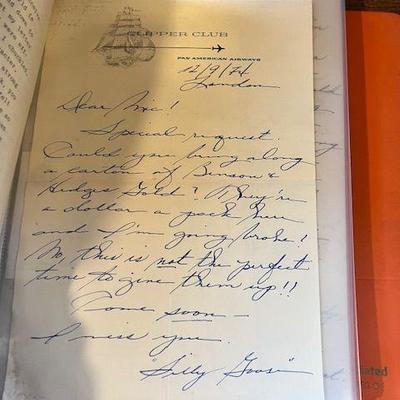 CLIPPER CLUB
PAN AMERICAN AIRWAYS
12/9/74
London
Dear Nic!
Special request.
Could you bring along
a carton of Benson &
Hedges Gold? They're
a dollar a pack here
and I'm going broke!
No, this is not the perfect
time to give them up!!
Come soon —
I miss you.
"Silly Goose"